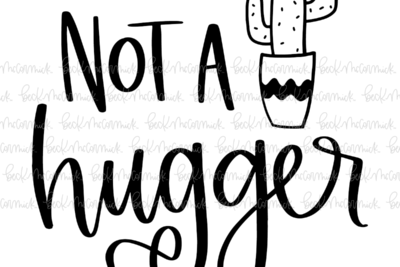 NOT A
hugger